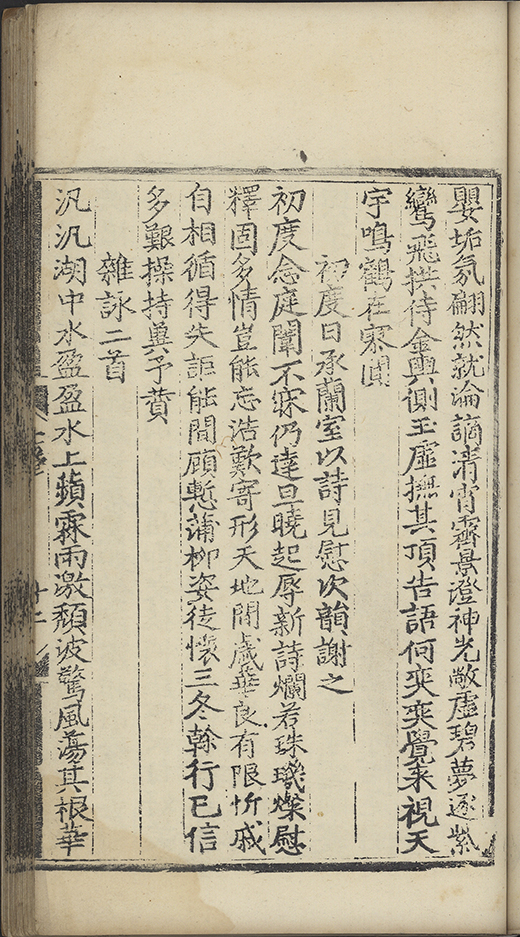 嬰垢氛翩然就淪謫淸宵霽景澄神光敞虛碧夢逐紫
鸞飛拱侍金輿側玉虛撫其頂告語何奕奕覺來視天
宇鳴鶴在寥闃
初度日承蘭室以詩見慰次韻謝之
初度念庭闈不寐仍達旦曉起辱新詩爛若珠璣燦慰
釋固多情豈能忘浩歎寄形天地間盛衰良有限忻戚
自相循得失詎能間顧慙蒲柳姿徒懷三冬榦行已信
多艱操持與予賁
雜詠二首
汎汎湖中水盈盈水上蘋霖雨激頹波驚風蕩其根華